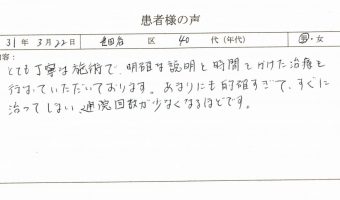 患者様の声
31年 3月22日 世田谷 区 40 代(年代) 男・女
内容:
とても丁寧な施術で、明確な説明と時間をかけた治療を
行なっていただいております。あまりにも的確すぎて、すぐに
治ってしまい、通院回数が少なくなるほどです。